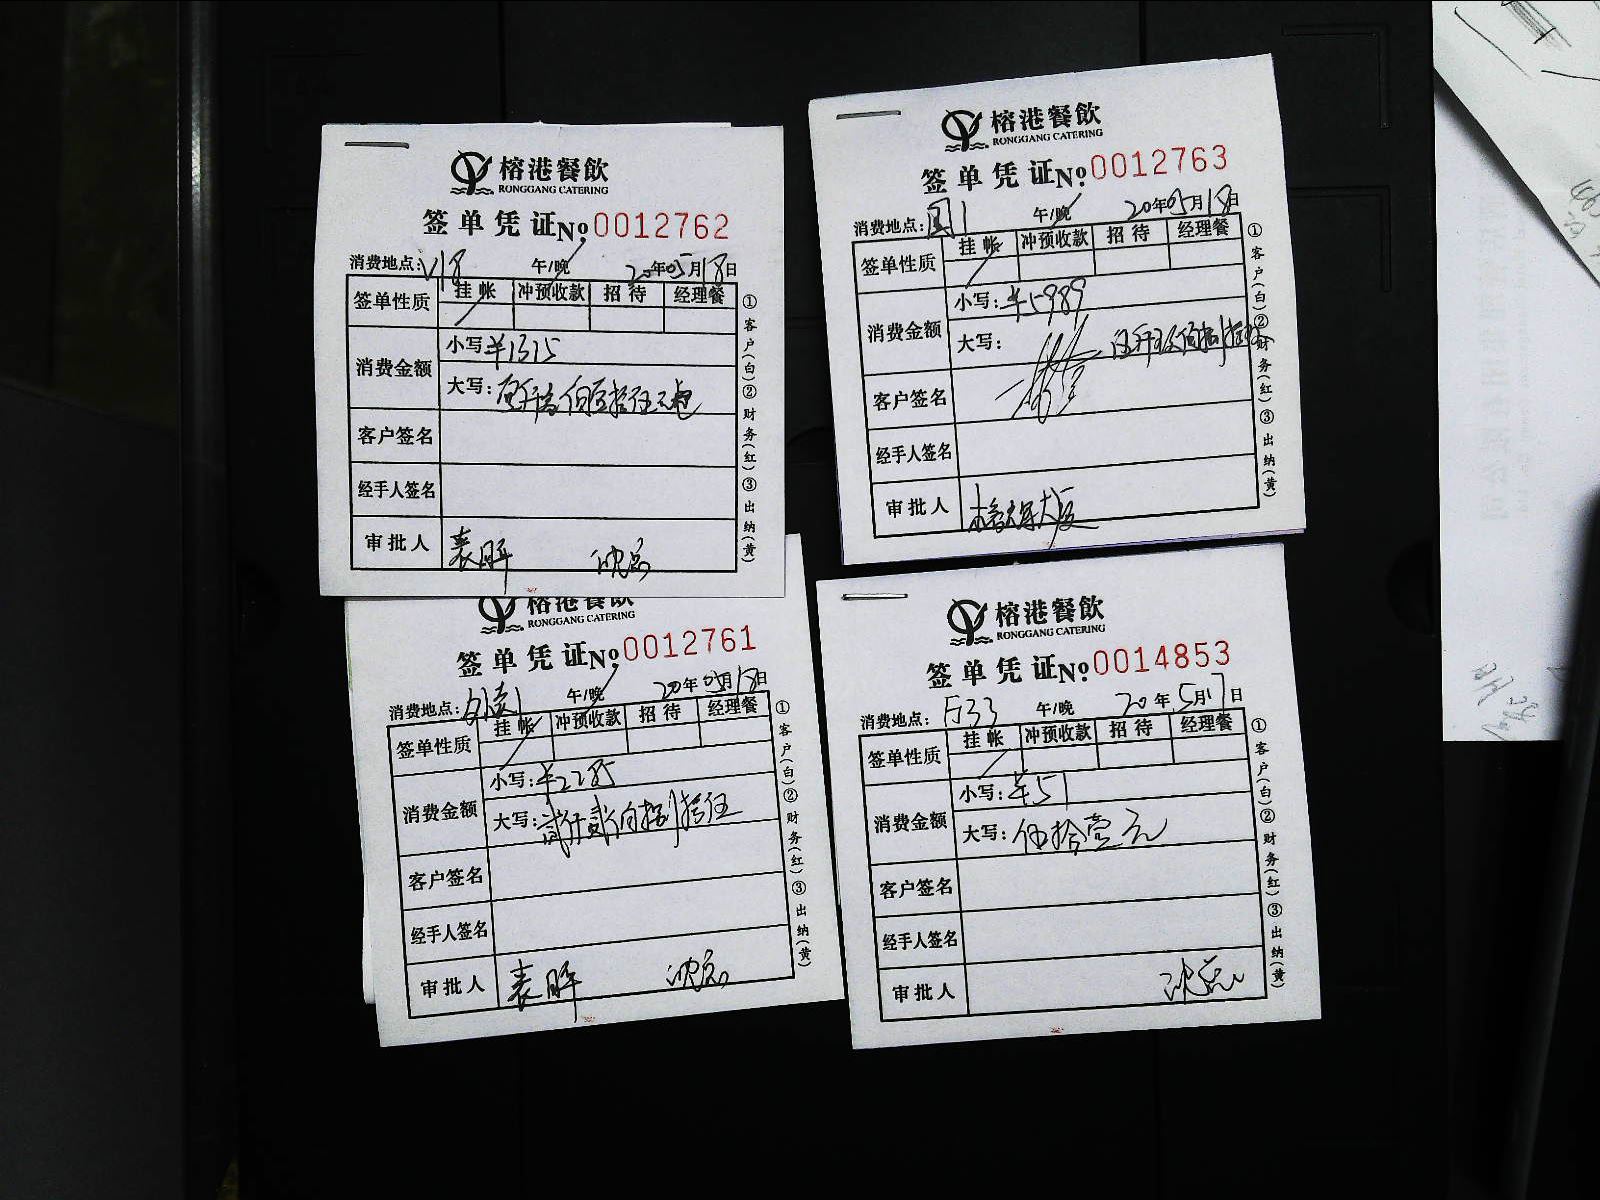 榕港餐飲
RONGGANG CATERING
签单凭证 No. 0012762
消费地点: V18 午/晚 20年05月18日
签单性质 挂帐 冲预收款 招待 经理餐
消费金额
小写: ¥1315
大写:
客户签名
经手人签名
审批人 袁晖 沈总
①客户(白)②财务(红)③出纳(黄)
榕港餐飲
RONGGANG CATERING
签单凭证 No. 0012763
消费地点: 午/晚 20年05月18日
签单性质 挂帐 冲预收款 招待 经理餐
消费金额
小写: ¥5989
大写: 伍仟玖佰捌拾玖
客户签名
经手人签名
审批人
①客户(白)②财务(红)③出纳(黄)
榕港餐飲
RONGGANG CATERING
签单凭证 No. 0012761
消费地点: 午/晚 20年05月18日
签单性质 挂帐 冲预收款 招待 经理餐
消费金额
小写: ¥2285
大写: 贰仟贰佰捌拾伍
客户签名
经手人签名
审批人 袁晖 沈总
①客户(白)②财务(红)③出纳(黄)
榕港餐飲
RONGGANG CATERING
签单凭证 No. 0014853
消费地点: 午/晚 20年5月17日
签单性质 挂帐 冲预收款 招待 经理餐
消费金额
小写: ¥51
大写: 伍拾壹元
客户签名
经手人签名
审批人 沈总
①客户(白)②财务(红)③出纳(黄)